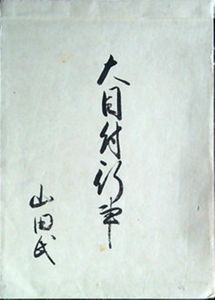 大目付行事
山田氏